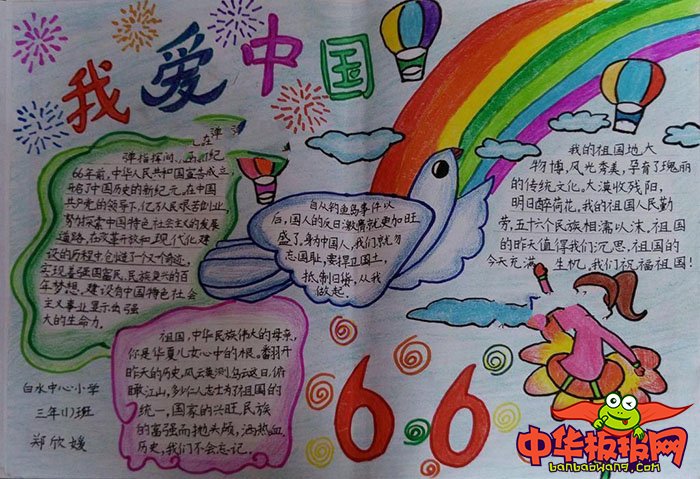 我爱中国
弹
在弹
弹指挥间,
66年前,中华人民共和国宣告成立,
开启了中国历史的新纪元,在中国
共产党的领导下,亿万人民艰苦创业,
努力探索中国特色社会主义的发展
道路,在改革开放和现代化建
设的历程中创造了一个又一个奇迹,
实现着强国富民,民族复兴的百
年梦想,建设有中国特色社会
主义事业显示出强
大的生命力。
自从钓鱼岛事件以
后,国人的反日激情就更加旺
盛了,身为中国人,我们就勿
忘国耻,要捍卫国土,
抵制日货,从我
做起。
我的祖国地大
物博,风光秀美,孕育了瑰丽
的传统文化。大漠收残阳,
明日醉荷花,我的祖国人民勤
劳,五十六个民族相濡以沫,祖国
的昨天值得我们沉思,祖国的
今天充满生机,我们祝福祖国!
祖国,中华民族伟大的母亲,
你是华夏儿女心中的根。翻开
昨天的历史,风云莫测乌云这日,俯
瞰江山,多少仁人志士为了祖国的
统一,国家的兴旺,民族
的富强而抛头颅,洒热血,
历史,我们不会忘记。
66
白水中心小学
三年(1)班
郑欣媛
中华板报网
banbaowang.com